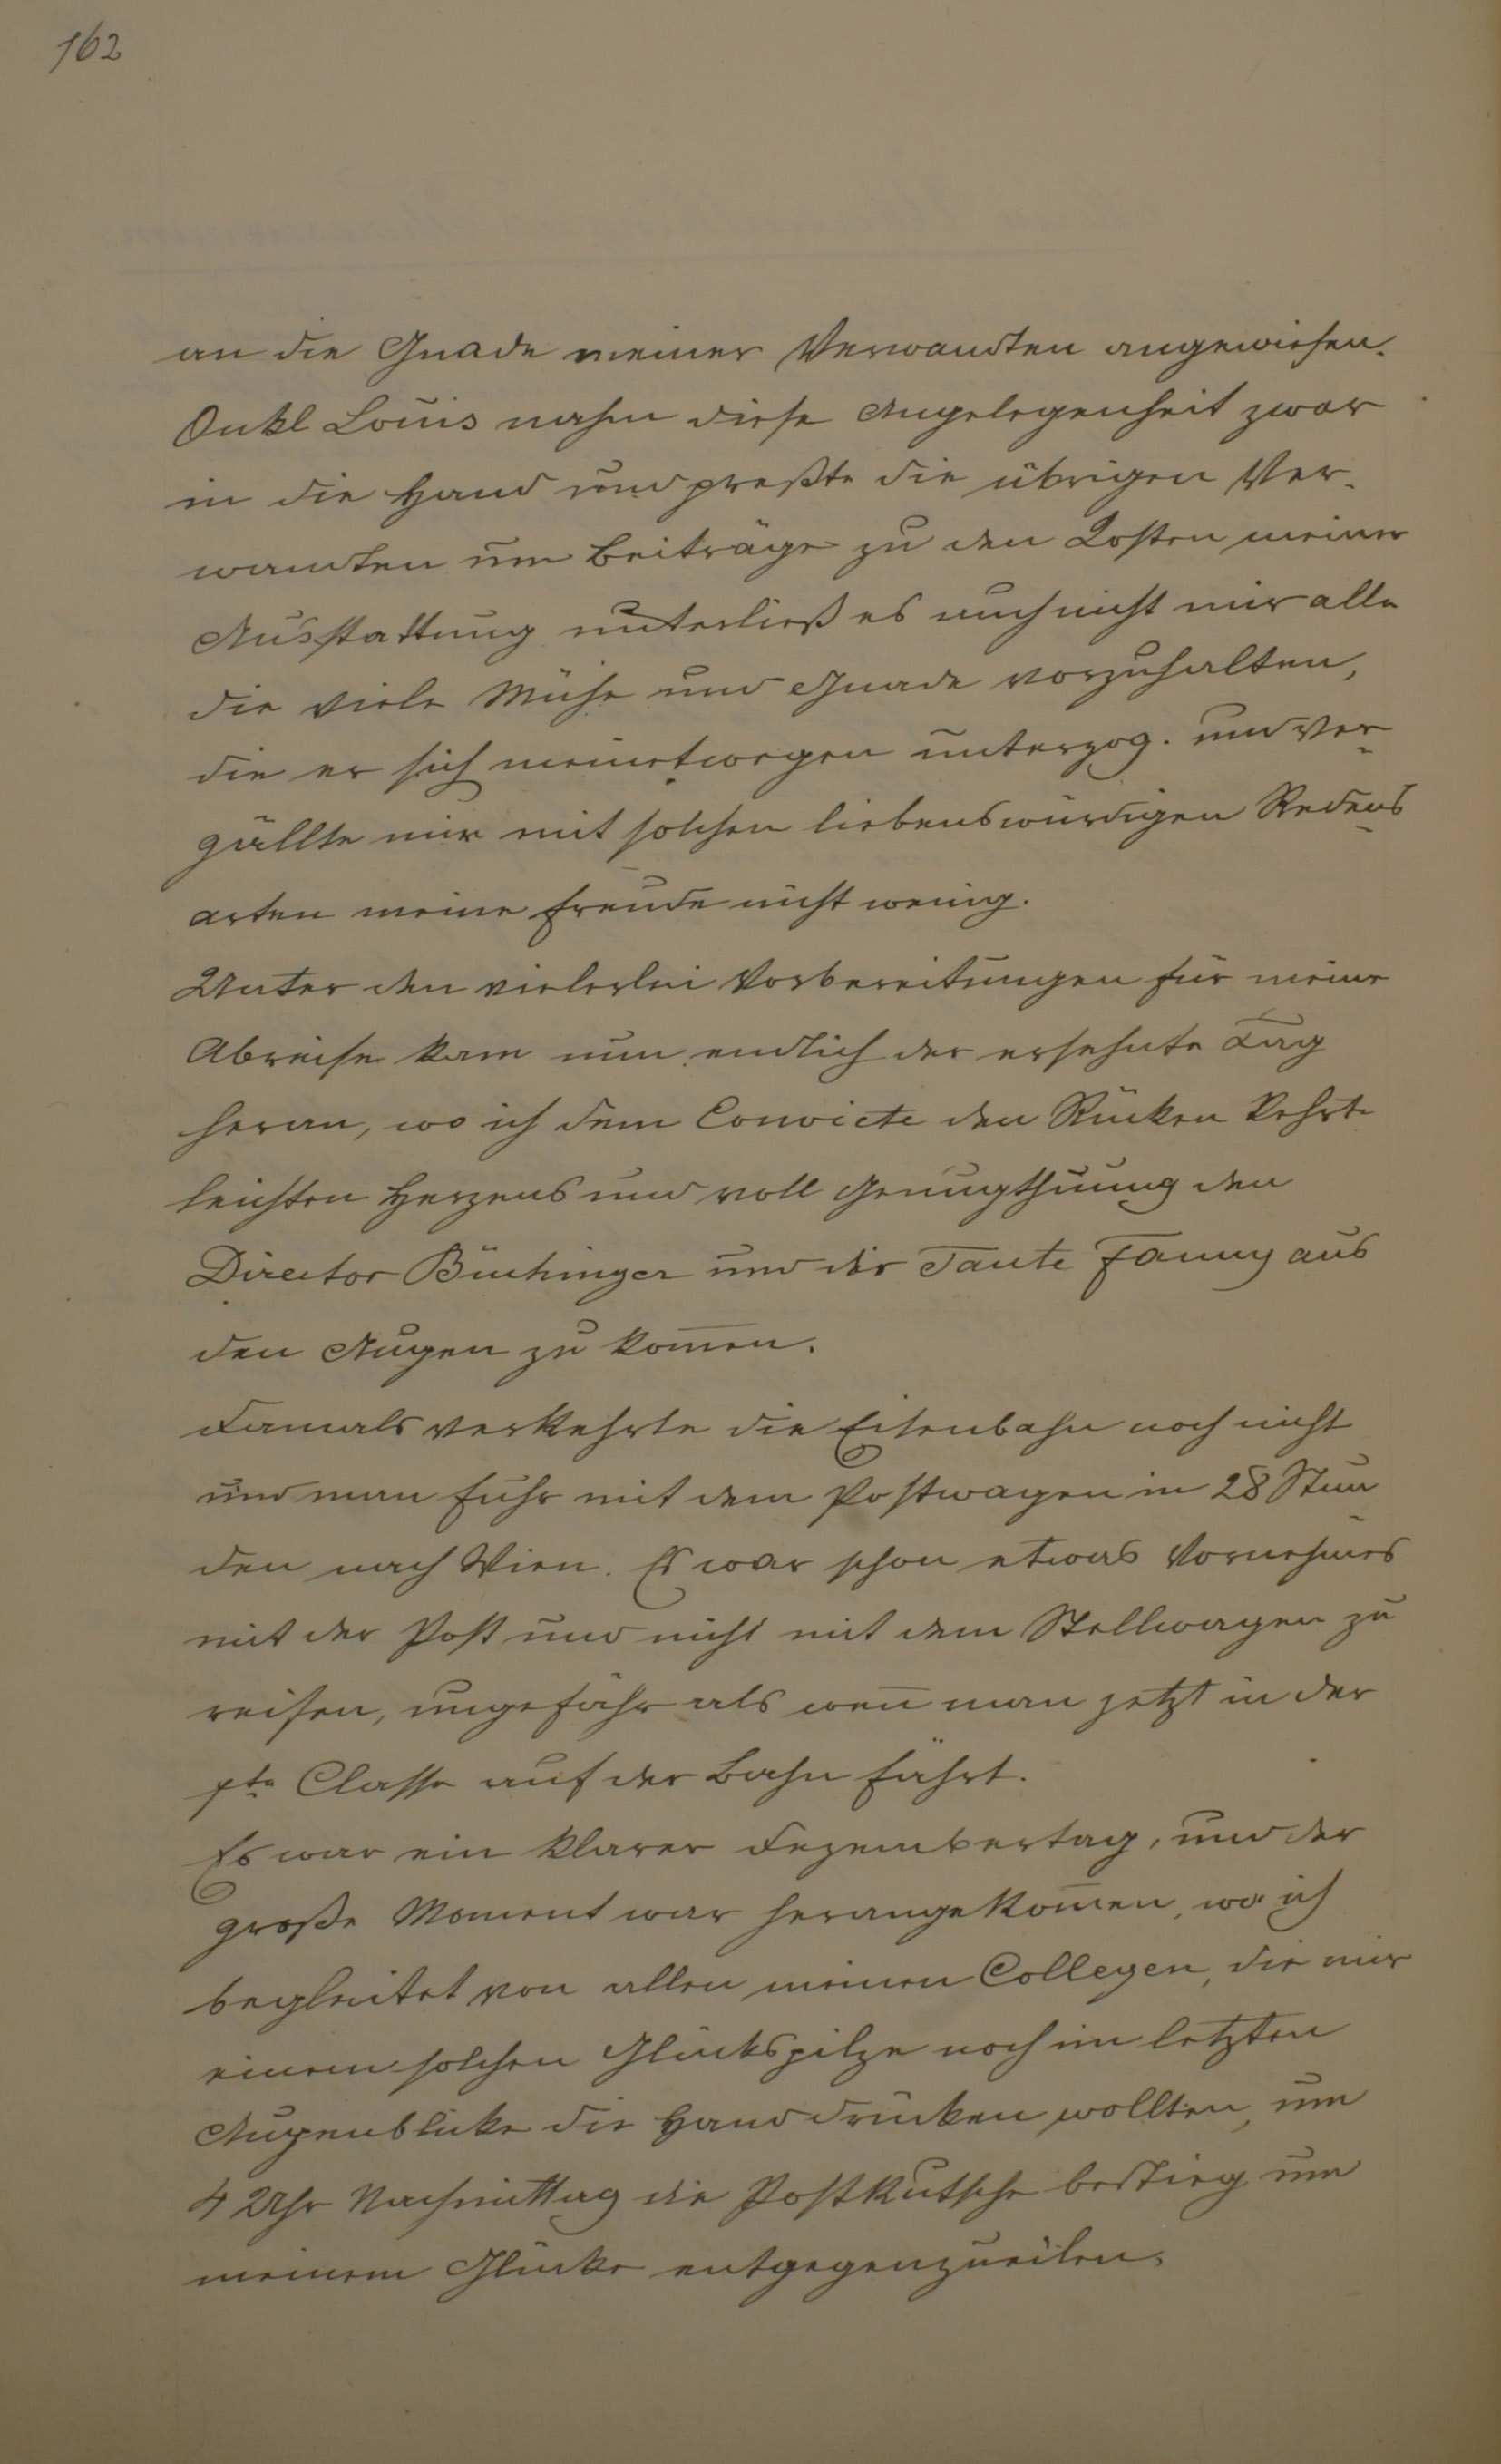 162
an die Gnade meiner Verwandten angewiesen.
Onkl Louis nahm diese Angelegenheit zwar
in die Hand und preßte die übrigen Ver-
wandten um Beiträge zu den Kosten meiner
Ausstattung unterließ es auch nicht mir alle
die viele Mühe und Gnade vorzuhalten,
die er sich meinetwegen unterzog. und ver-
gällte mir mit solchen liebenswürdigen Redens-
arten meine Freude nicht wenig.
Unter den vielerlei Vorbereitungen für meine
Abreise kam nun endlich der ersehnte Tag
heran, wo ich dem Convicte den Rücken kehrte
leichten Herzens und voll Genugthuung den
Director Büchinger und der Tante Fanny aus
den Augen zu kom̅en.
Damals verkehrte die Eisenbahn noch nicht
und man fuhr mit dem Postwagen in 28 Stun-
den nach Wien. Es war schon etwas Vornehmes
mit der Post und nicht mit dem Stellwagen zu
reisen, ungefähr als wen̅ man jetzt in der
1te Classe auf der Bahn fährt.
Es war ein klarer Dezembertag, und der
große Moment war herangekom̅en, wo ich
begleitet von allen meinen Collegen, die mir
einem solchen Glückspilze noch im letzten
Augenblicke die Hand drücken wollten, um
4 Uhr Nachmittag die Postkutsche bestieg um
meinem Glücke entgegenzueilen.